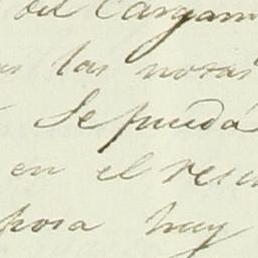 del Cargam
las notas
Se pueda
en el resu
hora hay